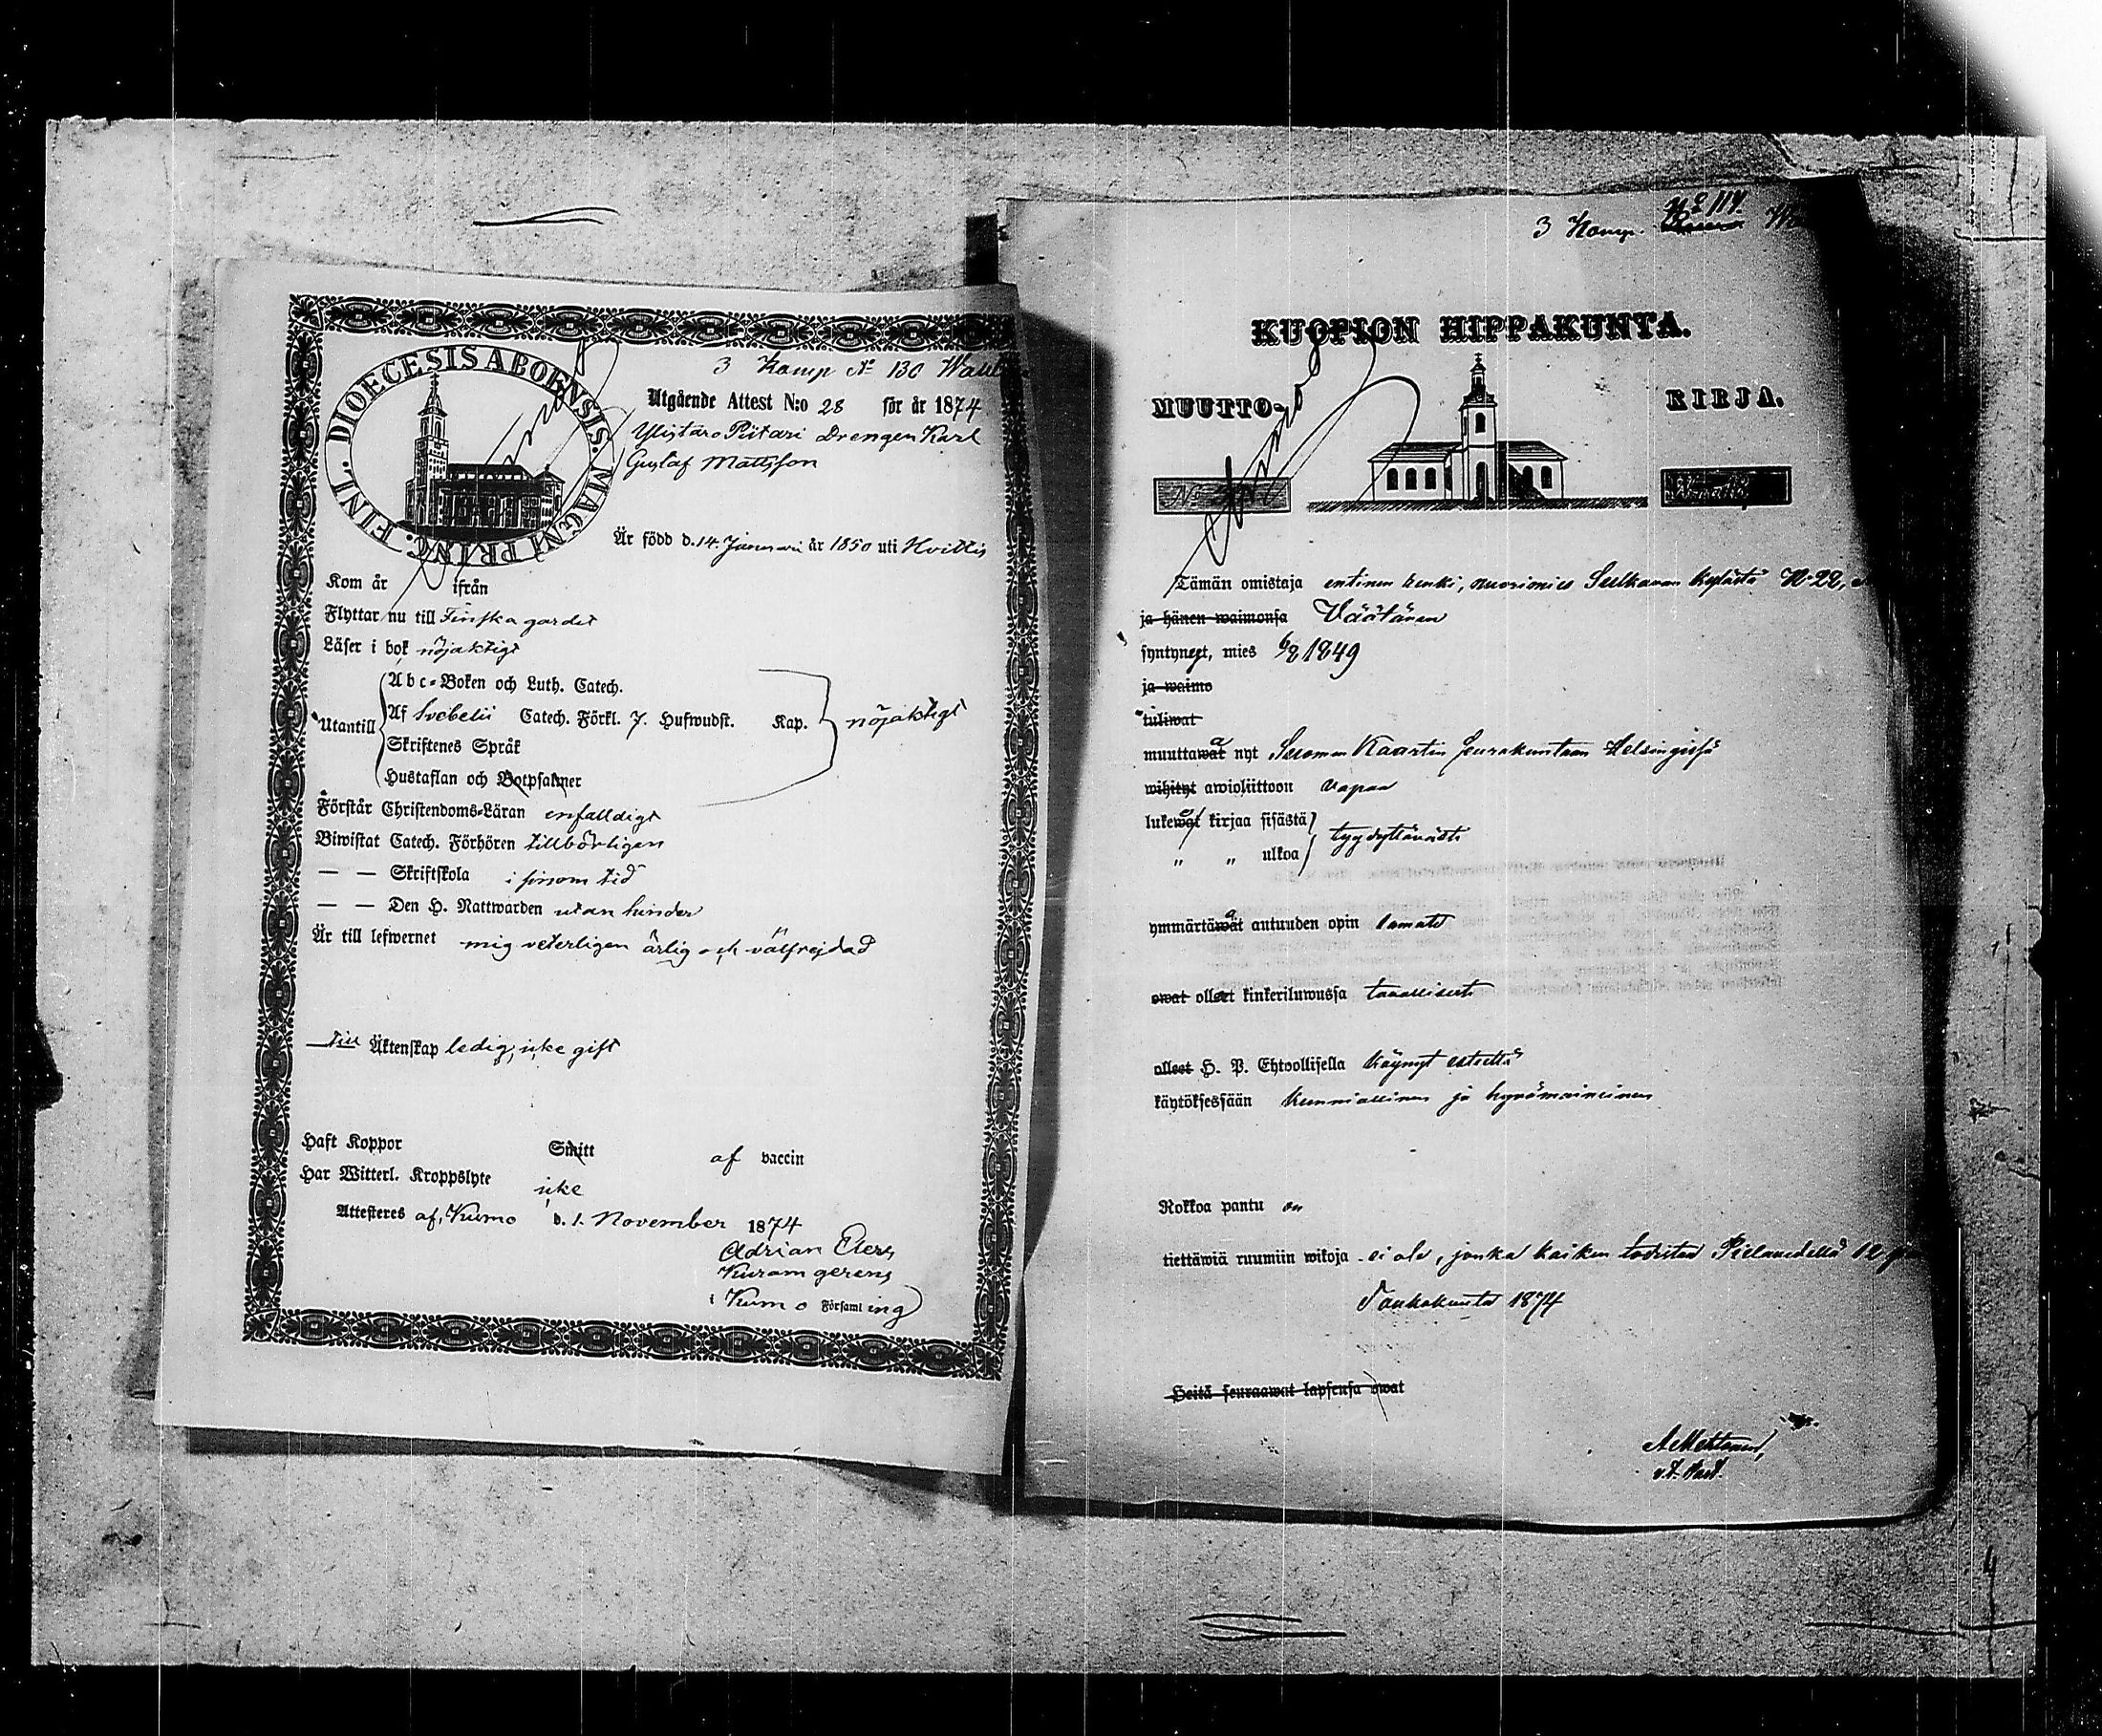 DIOECESIS ABOENSIS. MAGNI PRINC. FINL.
3 Komp No 130
Utgående Attest N:o 28 för år 1874
Ylistaro Piitari Drengen Karl
Gustaf Mattsson
Är född d. 14. Januari år 1850 uti Hvittis
Kom år ifrån
Flyttar nu till Finska gardet
Läser i bok nöjaktigt
Utantill
Abc-Boken och Luth. Catech.
Af Svebelii Catech. Förkl. 7. Hufwudst. Kap. nöjaktigt
Skriftenes Språk
Hustaflan och Botpsalmer
Förstår Christendoms-Läran enfalldigt
Biwistat Catech. Förhören tillbörligen
— — Skriftskola i sinom tid
— — Den H. Nattwarden utan hinder
Är till lefwernet mig veterligen ärlig och välfrejdad
till Äktenskap ledig, icke gift
Haft Koppor Smitt af vaccin
Har Witterl. Kroppslyte icke
Attesteres af, Kumo d. 1. November 1874
Adrian
i Kumo Församling
3 Komp. No 114.
KUOPION HIPPAKUNTA.
MUUTTO- KIRJA.
Tämän omistaja entinen renki, nuorimies Sulkavan kylästä No 22,
ja hänen waimonsa Väätänen
syntyneet, mies 6/8 1849
ja waimo
tuliwat
muuttawat nyt Suomen Kaartin seurakuntaan Helsingissä
wihityt awioliittoon vapaa
lukewat kirjaa sisästä
" " ulkoa tyydyttävästi
ymmärtäwät autuuden opin
owat olleet kinkeriluwussa tavallisesti
olleet H. P. Ehtoollisella käynyt esteettä
käytöksessään kunniallinen ja hyvämaineinen
Rokkoa pantu on
tiettäwiä ruumiin wikoja ei ole, jonka kaiken todistaa Pielavedellä 12 p
Toukokuuta 1874
Heitä seuraawat lapsensa owat